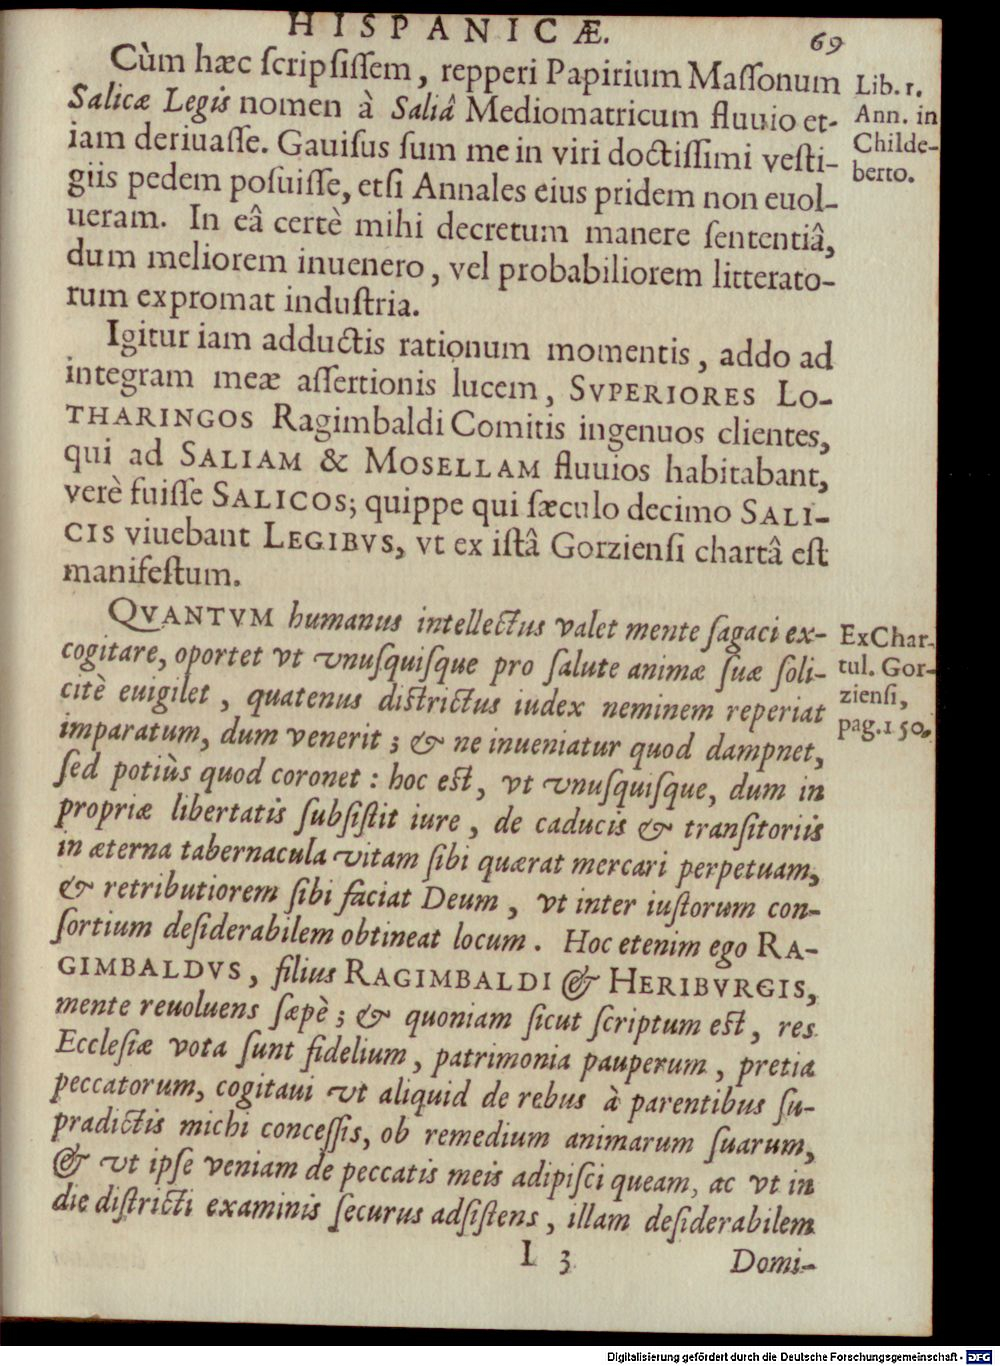 HISPANICÆ.
69
Cùm hæc ſcripſiſſem, repperi Papirium Maſſonum
Salicæ Legis nomen à Saliâ Mediomatricum fluuio et-
iam deriuaſſe. Gauiſus ſum me in viri doctiſſimi veſti-
giis pedem poſuiſſe, etſi Annales eius pridem non euol-
ueram. In eâ certè mihi decretum manere ſententiâ,
dum meliorem inuenero, vel probabiliorem litterato-
rum expromat induſtria.
Lib. 1.
Ann. in
Childe-
berto.
Igitur iam adductis rationum momentis, addo ad
integram meæ aſſertionis lucem, SVPERIORES LO-
THARINGOS Ragimbaldi Comitis ingenuos clientes,
qui ad SALIAM & MOSELLAM fluuios habitabant,
verè fuiſſe SALICOS; quippe qui ſæculo decimo SALI-
CIS viuebant LEGIBVS, vt ex iſtâ Gorzienſi chartâ eſt
manifeſtum.
QVANTVM humanus intellectus valet mente ſagaci ex-
cogitare, oportet vt vnuſquiſque pro ſalute animæ ſuæ ſoli-
citè euigilet, quatenus diſtrictus iudex neminem reperiat
imparatum, dum venerit; & ne inueniatur quod dampnet,
ſed potiùs quod coronet: hoc eſt, vt vnuſquiſque, dum in
propriæ libertatis ſubſiſtit iure, de caducis & tranſitoriis
in æterna tabernacula vitam ſibi quærat mercari perpetuam,
& retributiorem ſibi faciat Deum, vt inter iuſtorum con-
ſortium deſiderabilem obtineat locum. Hoc etenim ego RA-
GIMBALDVS, filius RAGIMBALDI & HERIBVRGIS,
mente reuoluens ſæpè; & quoniam ſicut ſcriptum eſt, res
Eccleſiæ vota ſunt fidelium, patrimonia pauperum, pretia
peccatorum, cogitaui vt aliquid de rebus à parentibus ſu-
pradictis michi conceſſis, ob remedium animarum ſuarum,
& vt ipſe veniam de peccatis meis adipiſci queam, ac vt in
die diſtricti examinis ſecurus adſiſtens, illam deſiderabilem
Ex Char-
tul. Gor-
zienſi,
pag. 150.
I 3
Domi-
Digitalisierung gefördert durch die Deutsche Forschungsgemeinschaft - DFG